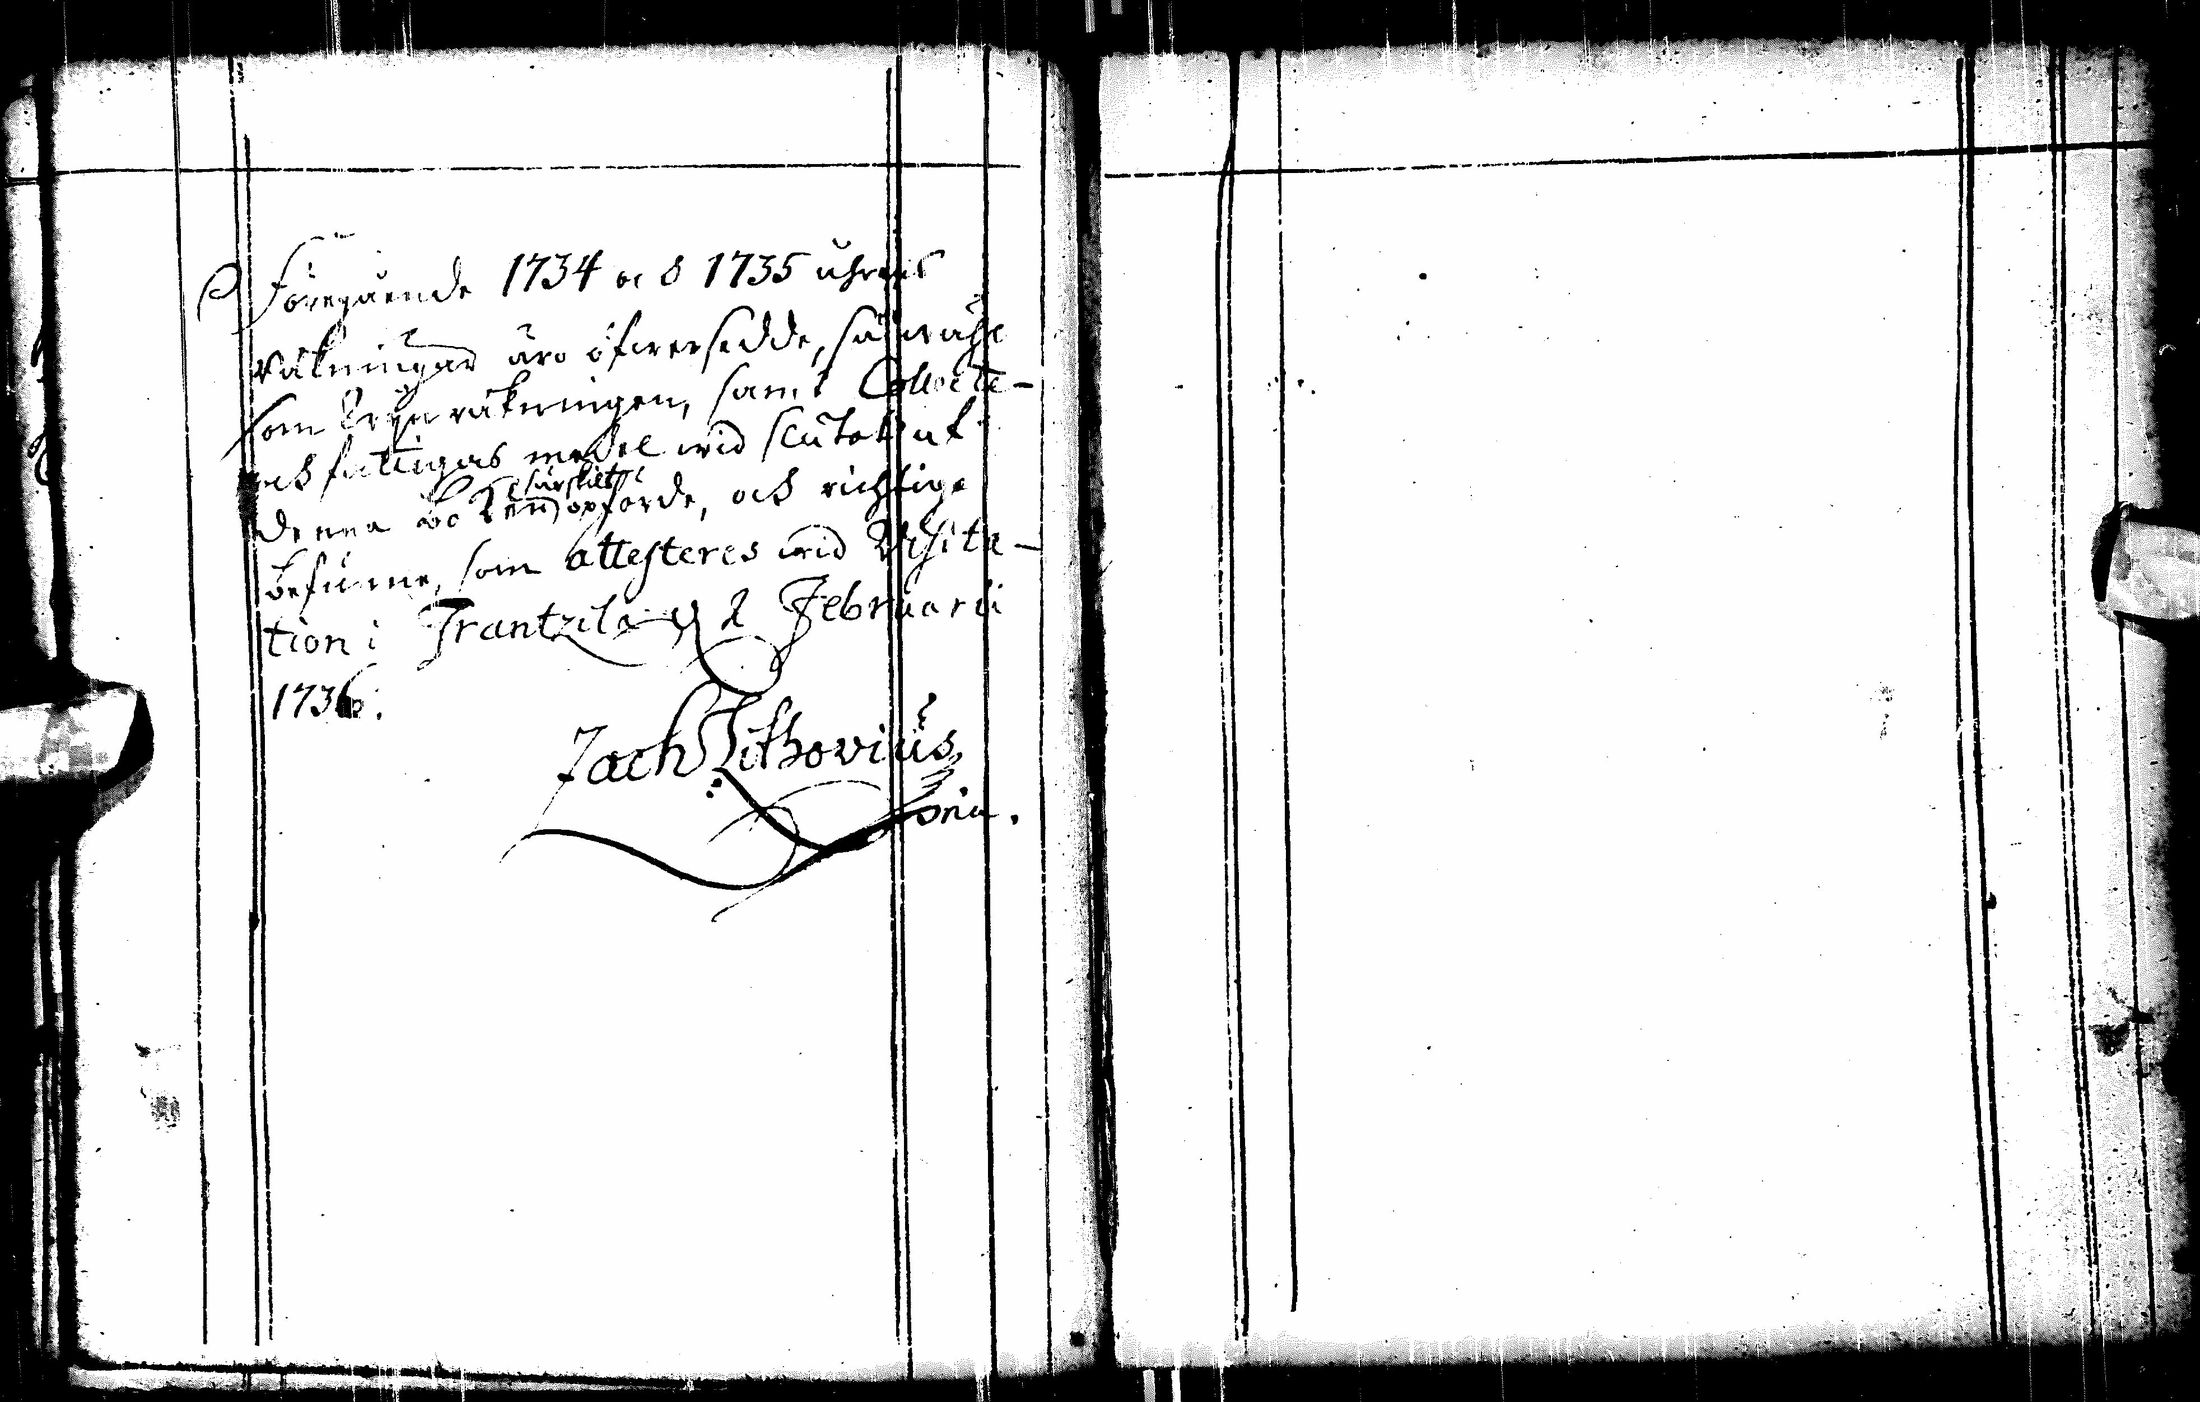 Föregående 1734 och 1735 åhrens
räkningar äro öfwersedde, såwähl
som Kyrckräkningen, samt Collecte-
och fattigas medel wid slutet af
denna boken särskilt opförde, och richtige
befundne, som attesteres wid Visita-
tion i Frantzila d 2 Februarii
1736.
Zach: Lithovius